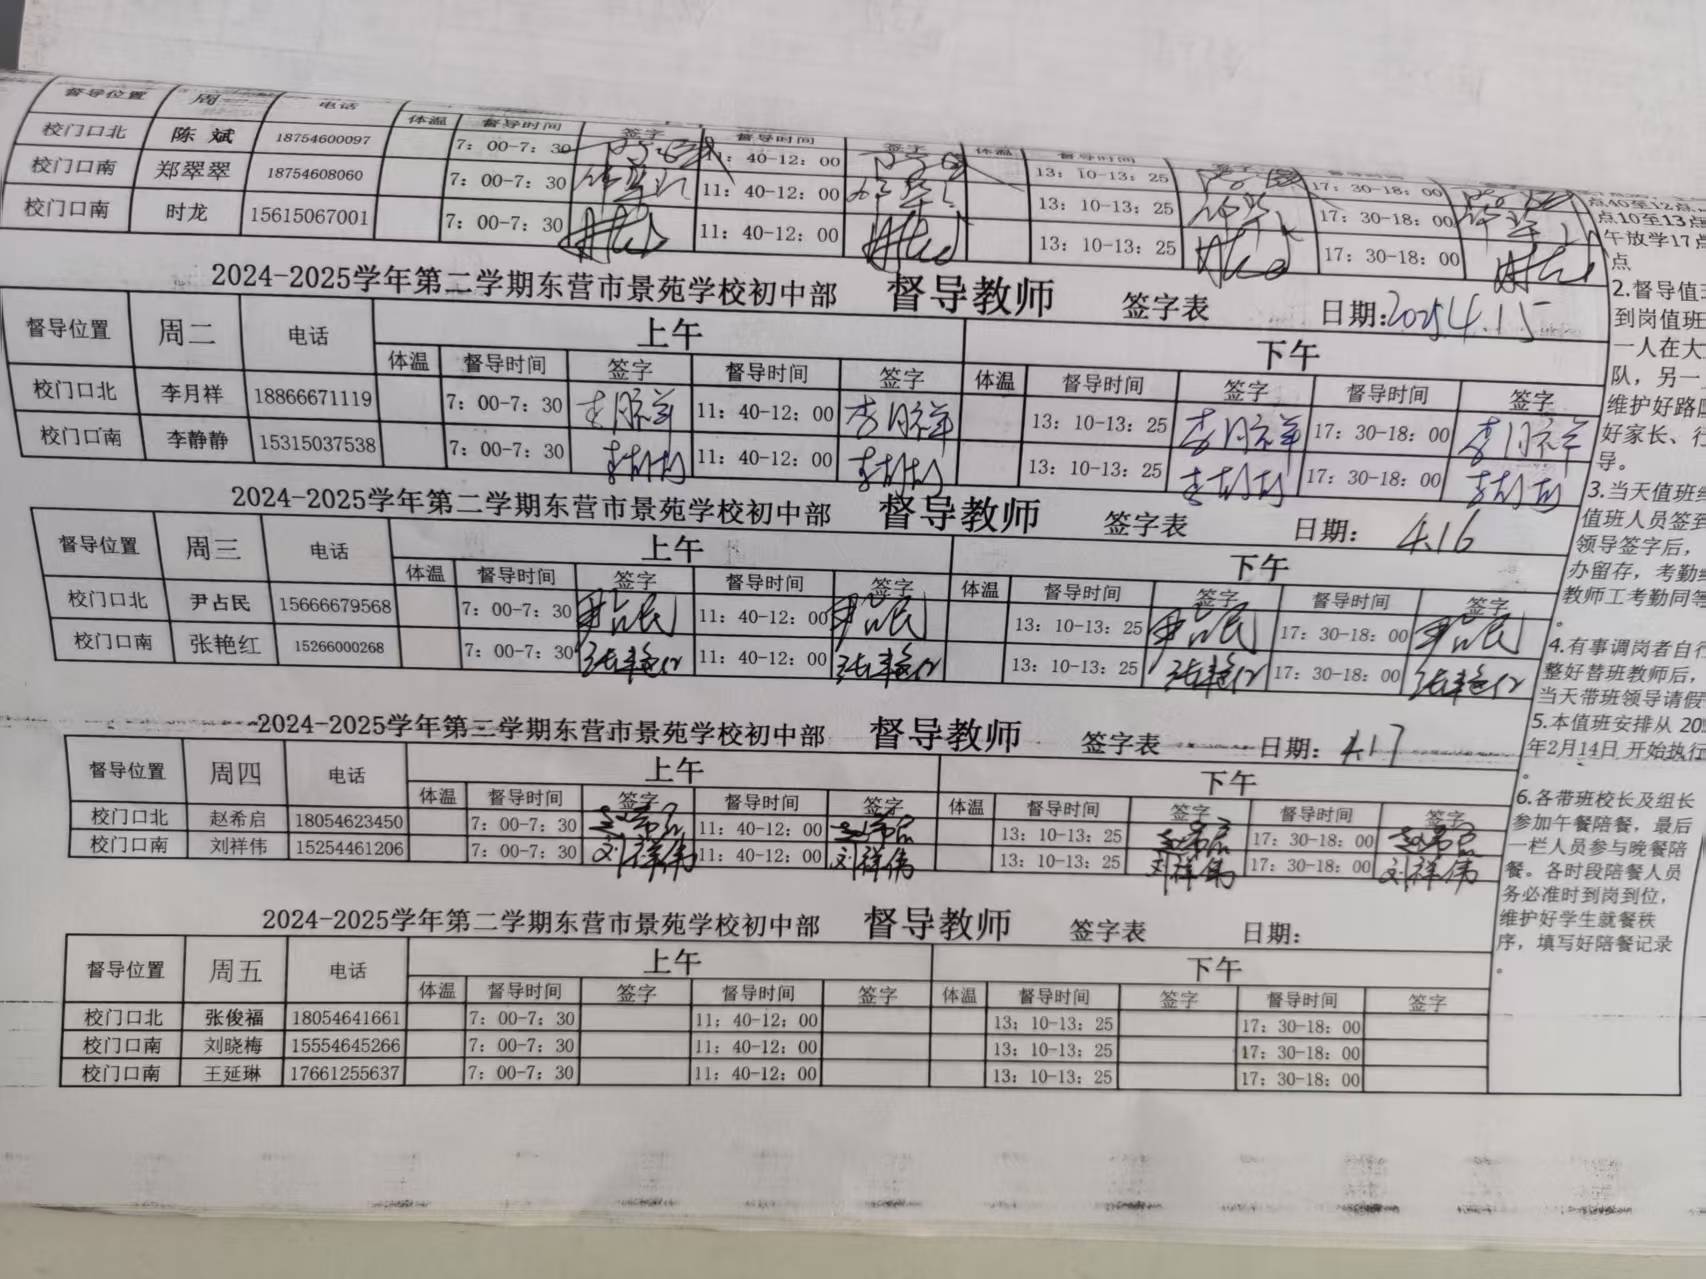 督导位置 周一 电话 体温 督导时间 签字 督导时间 签字 体温 督导时间 签字 督导时间
校门口北 陈斌 18754600097 7：00-7：30 11：40-12：00 13：10-13：25 17：30-18：00
校门口南 郑翠翠 18754608060 7：00-7：30 11：40-12：00 13：10-13：25 17：30-18：00
校门口南 时龙 15615067001 7：00-7：30 时龙 11：40-12：00 时龙 13：10-13：25 时龙 17：30-18：00 时龙
2024-2025学年第二学期东营市景苑学校初中部 督导教师 签字表 日期:2025.4.15
督导位置 周二 电话 上午 下午
体温 督导时间 签字 督导时间 签字 体温 督导时间 签字 督导时间 签字
校门口北 李月祥 18866671119 7：00-7：30 李月祥 11：40-12：00 李月祥 13：10-13：25 李月祥 17：30-18：00 李月祥
校门口南 李静静 15315037538 7：00-7：30 李静静 11：40-12：00 李静静 13：10-13：25 李静静 17：30-18：00 李静静
2024-2025学年第二学期东营市景苑学校初中部 督导教师 签字表 日期： 4.16
督导位置 周三 电话 上午 下午
体温 督导时间 签字 督导时间 签字 体温 督导时间 签字 督导时间 签字
校门口北 尹占民 15666679568 7：00-7：30 尹占民 11：40-12：00 尹占民 13：10-13：25 尹占民 17：30-18：00 尹占民
校门口南 张艳红 15266000268 7：00-7：30 张艳红 11：40-12：00 张艳红 13：10-13：25 张艳红 17：30-18：00 张艳红
2024-2025学年第二学期东营市景苑学校初中部 督导教师 签字表 日期： 4.17
督导位置 周四 电话 上午 下午
体温 督导时间 签字 督导时间 签字 体温 督导时间 签字 督导时间 签字
校门口北 赵希启 18054623450 7：00-7：30 赵希启 11：40-12：00 赵希启 13：10-13：25 赵希启 17：30-18：00 赵希启
校门口南 刘祥伟 15254461206 7：00-7：30 刘祥伟 11：40-12：00 刘祥伟 13：10-13：25 刘祥伟 17：30-18：00 刘祥伟
2024-2025学年第二学期东营市景苑学校初中部 督导教师 签字表 日期：
督导位置 周五 电话 上午 下午
体温 督导时间 签字 督导时间 签字 体温 督导时间 签字 督导时间 签字
校门口北 张俊福 18054641661 7：00-7：30 11：40-12：00 13：10-13：25 17：30-18：00
校门口南 刘晓梅 15554645266 7：00-7：30 11：40-12：00 13：10-13：25 17：30-18：00
校门口南 王延琳 17661255637 7：00-7：30 11：40-12：00 13：10-13：25 17：30-18：00
点40至12点
点10至13点
午放学17点
点
2.督导值
到岗值班
一人在大
队，另一
维护好路
好家长、行
导。
3.当天值班
值班人员签到
领导签字后，
办留存，考勤
教师工考勤同等
。
4.有事调岗者自行
整好替班教师后，
当天带班领导请假
5.本值班安排从 20
年2月14日 开始执行
。
6.各带班校长及组长
参加午餐陪餐，最后
一栏人员参与晚餐陪
餐。各时段陪餐人员
务必准时到岗到位，
维护好学生就餐秩
序，填写好陪餐记录
。